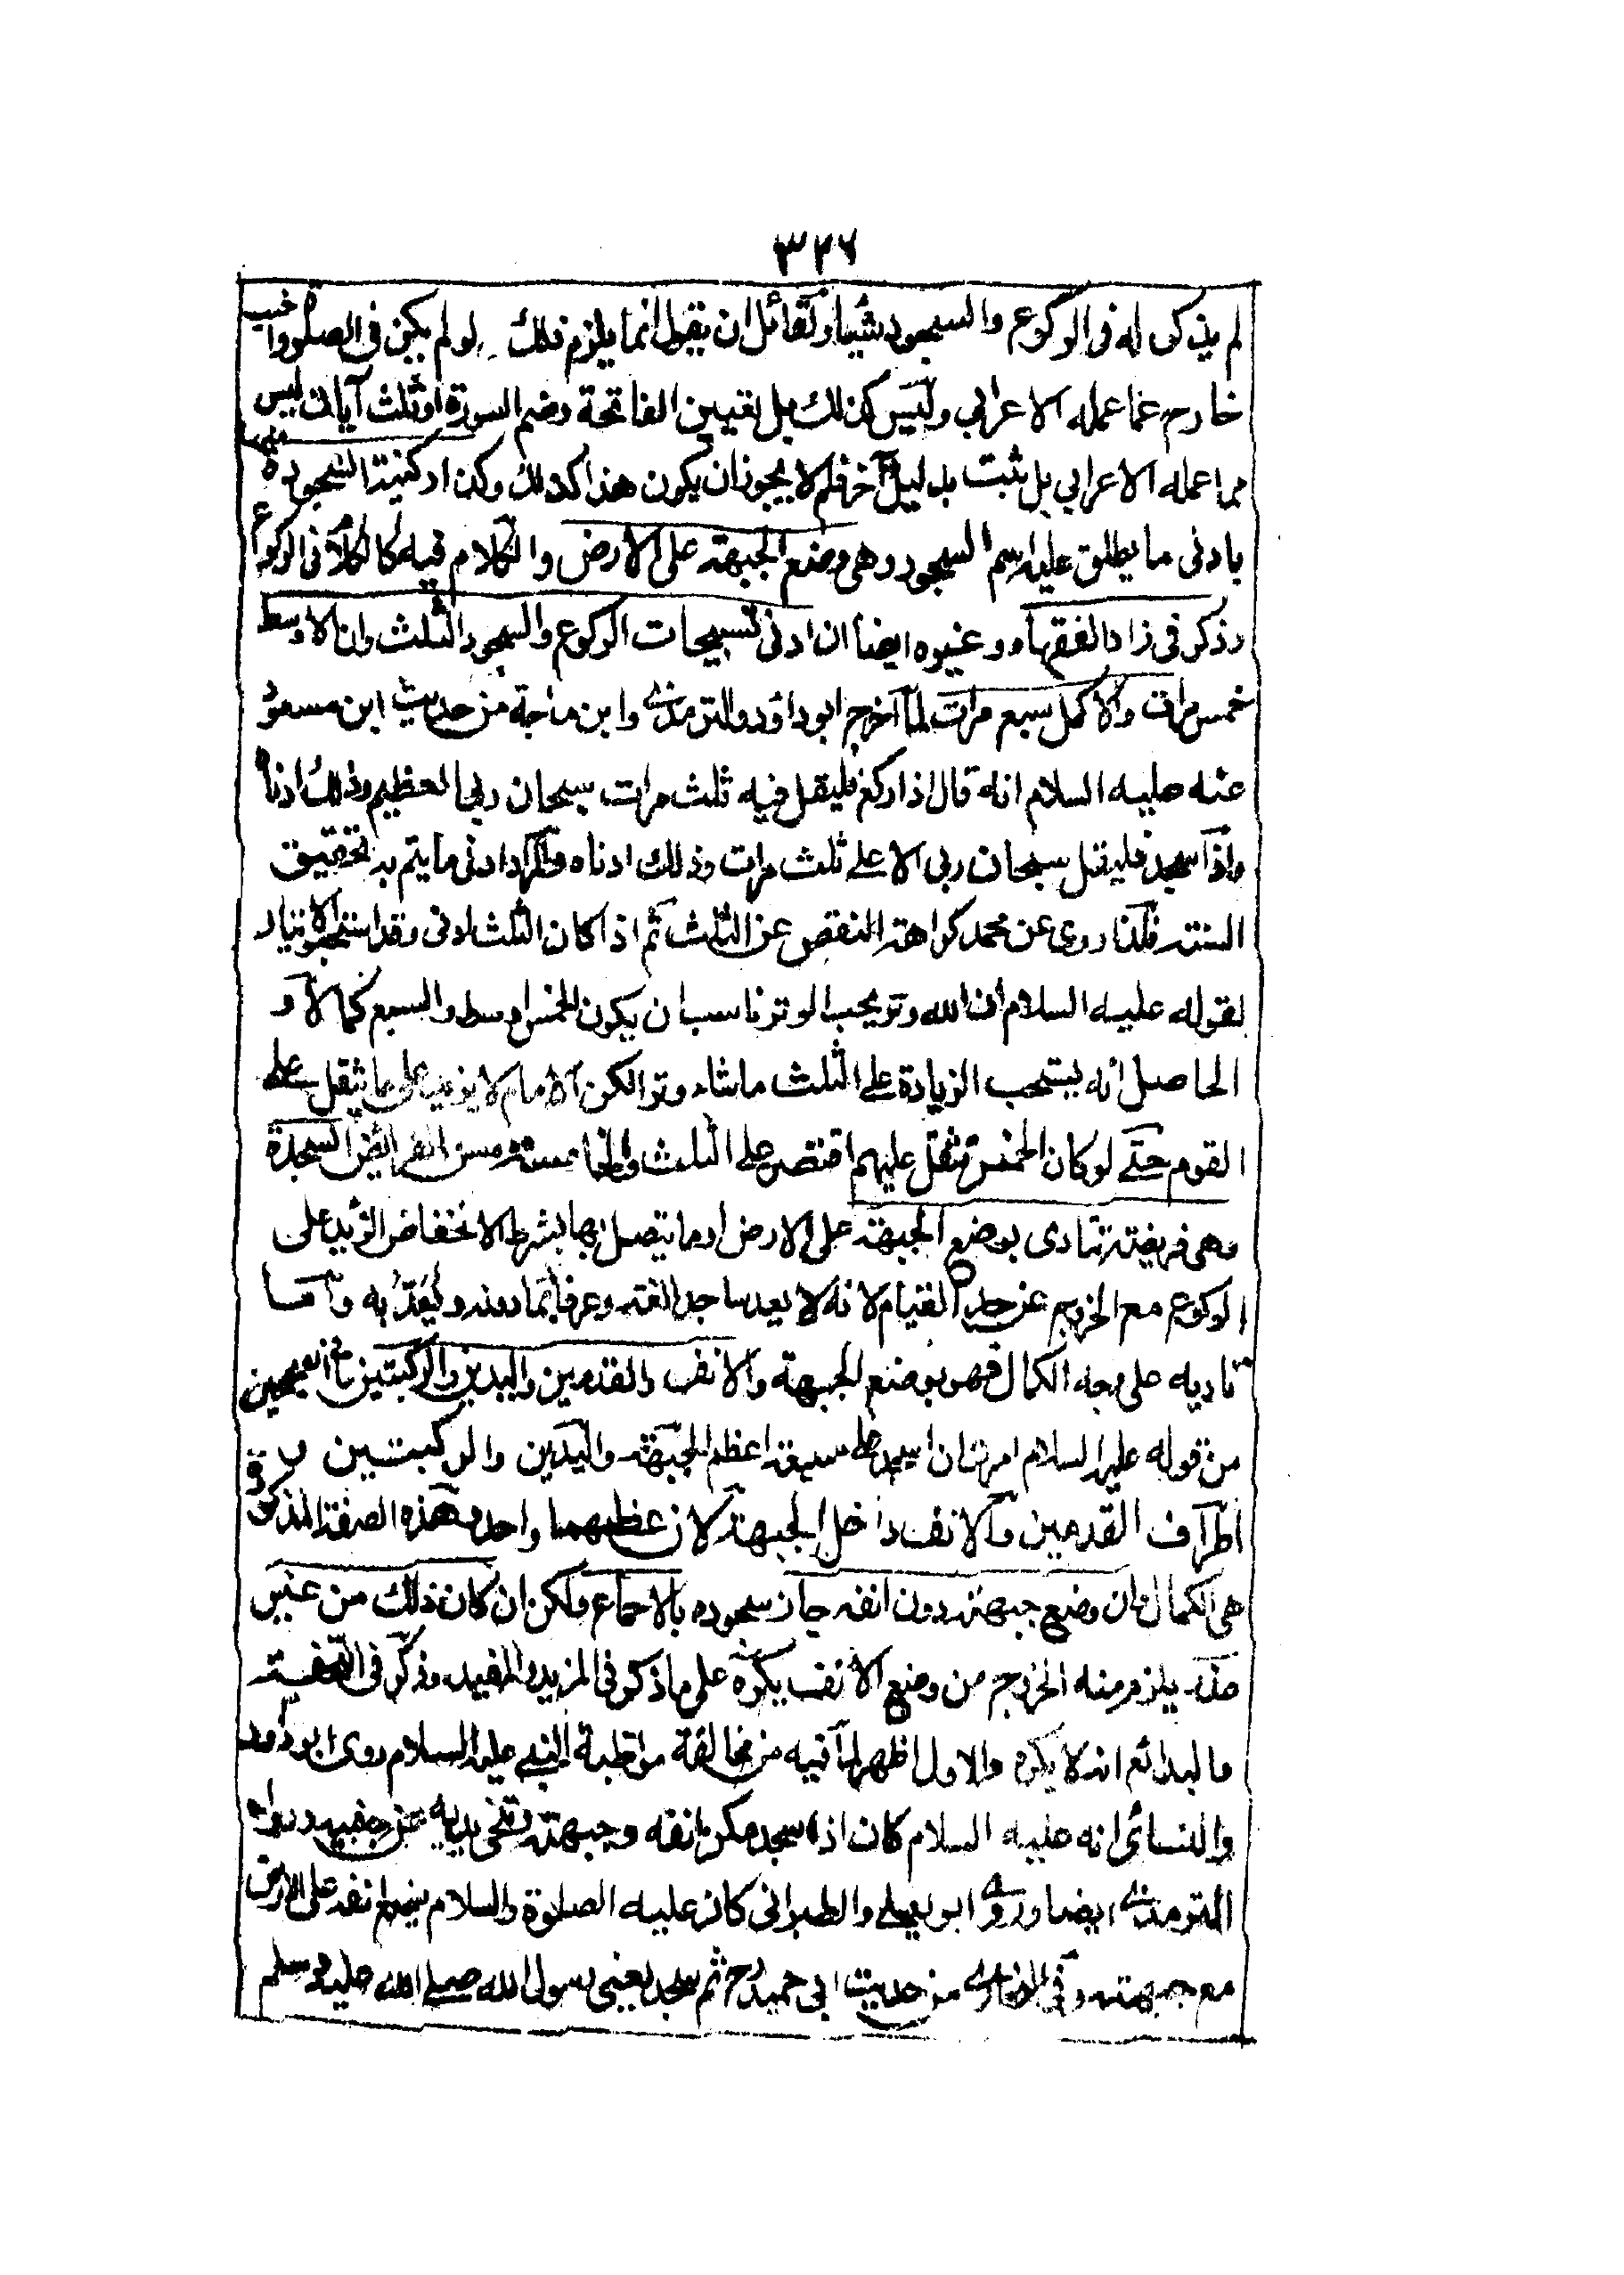 ٣٢٧
لم يذكر له فى الركوع والسجود شيئا ولقائل ان يقول انما يلزم ذلك لو لم يكن فى الصلوة واجب
خارج عما عمله الاعرابي وليس كذلك بل تعيين الفاتحة وضم السورة او ثلث آيات ليس
مما عمله الاعرابي بل ثبت بدليل آخر فلم لا يجوز ان يكون هذا كذلك وكذا ركنية السجود
بادنى ما يطلق عليه اسم السجود وهى وضع الجبهة على الارض والكلام فيه كالكلام فى الركوع
وذكر فى زاد الفقهاء وغيره ايضا ان ادنى تسبيحات الركوع والسجود الثلث وان الاوسط
خمس مرات والاكمل سبع مرات لما اخرج ابو داؤد والترمذى وابن ماجة من حديث ابن مسعود
عنه عليه السلام انه قال اذا ركع فليقل فيه ثلث مرات سبحان ربى العظيم وذلك ادناه
واذا سجد فليقل سبحان ربى الاعلى ثلث مرات وذلك ادناه والمراد ادنى ما يتم به تحقيق
السنة فلذا روى عن محمد كراهة النقص عن الثلث ثم اذا كان الثلث ادنى وقد استحبوا الايتار
لقوله عليه السلام ان الله وتر يحب الوتر ناسب ان يكون الخمس اوسط والسبع كمالا و
الحاصل انه يستحب الزيادة على الثلث ما شاء وترا لكن الامام لا يزيد على ما يثقل على
القوم حتى لو كان الخمس تثقل عليهم اقتصر على الثلث والخامسة من الفرائض السجدة
وهى فريضة تتادى بوضع الجبهة على الارض او ما يتصل بها بشرط الانخفاض الزايد على
الركوع مع الخروج عن حد القيام لانه لا يعد ساجدا لغة وعرفا بما دونه ويعد به واما
تاديه على وجه الكمال فهو بوضع الجبهة والانف والقدمين واليدين والركبتين لما فى الصحيحين
من قوله عليه السلام امرت ان اسجد على سبعة اعظم الجبهة واليدين والركبتين و
اطراف القدمين والانف داخل الجبهة لان عظمهما واحد وهذه الصفة المذكورة
هى الكمال وان وضع جبهته دون انفه جاز سجوده بالاجماع ولكن ان كان ذلك من غير
عذر يلزم منه الخروج من وضع الانف يكره على ما ذكر فى المزيد والمفيد وذكر فى التحفة
والبدائع انه لا يكره والاول اظهر لما فيه من مخالفة مواظبة النبى عليه السلام روى ابو داؤد
والنسائى انه عليه السلام كان اذا سجد مكن انفه وجبهته ونحى يديه عن جنبيه ورواه
الترمذى ايضا وروى ابو يعلى والطبرانى كان عليه الصلوة والسلام يضع انفه على الارض
مع جبهته وفى البخارى من حديث ابى حميد رح ثم سجد يعنى رسول الله صلى الله عليه وسلم